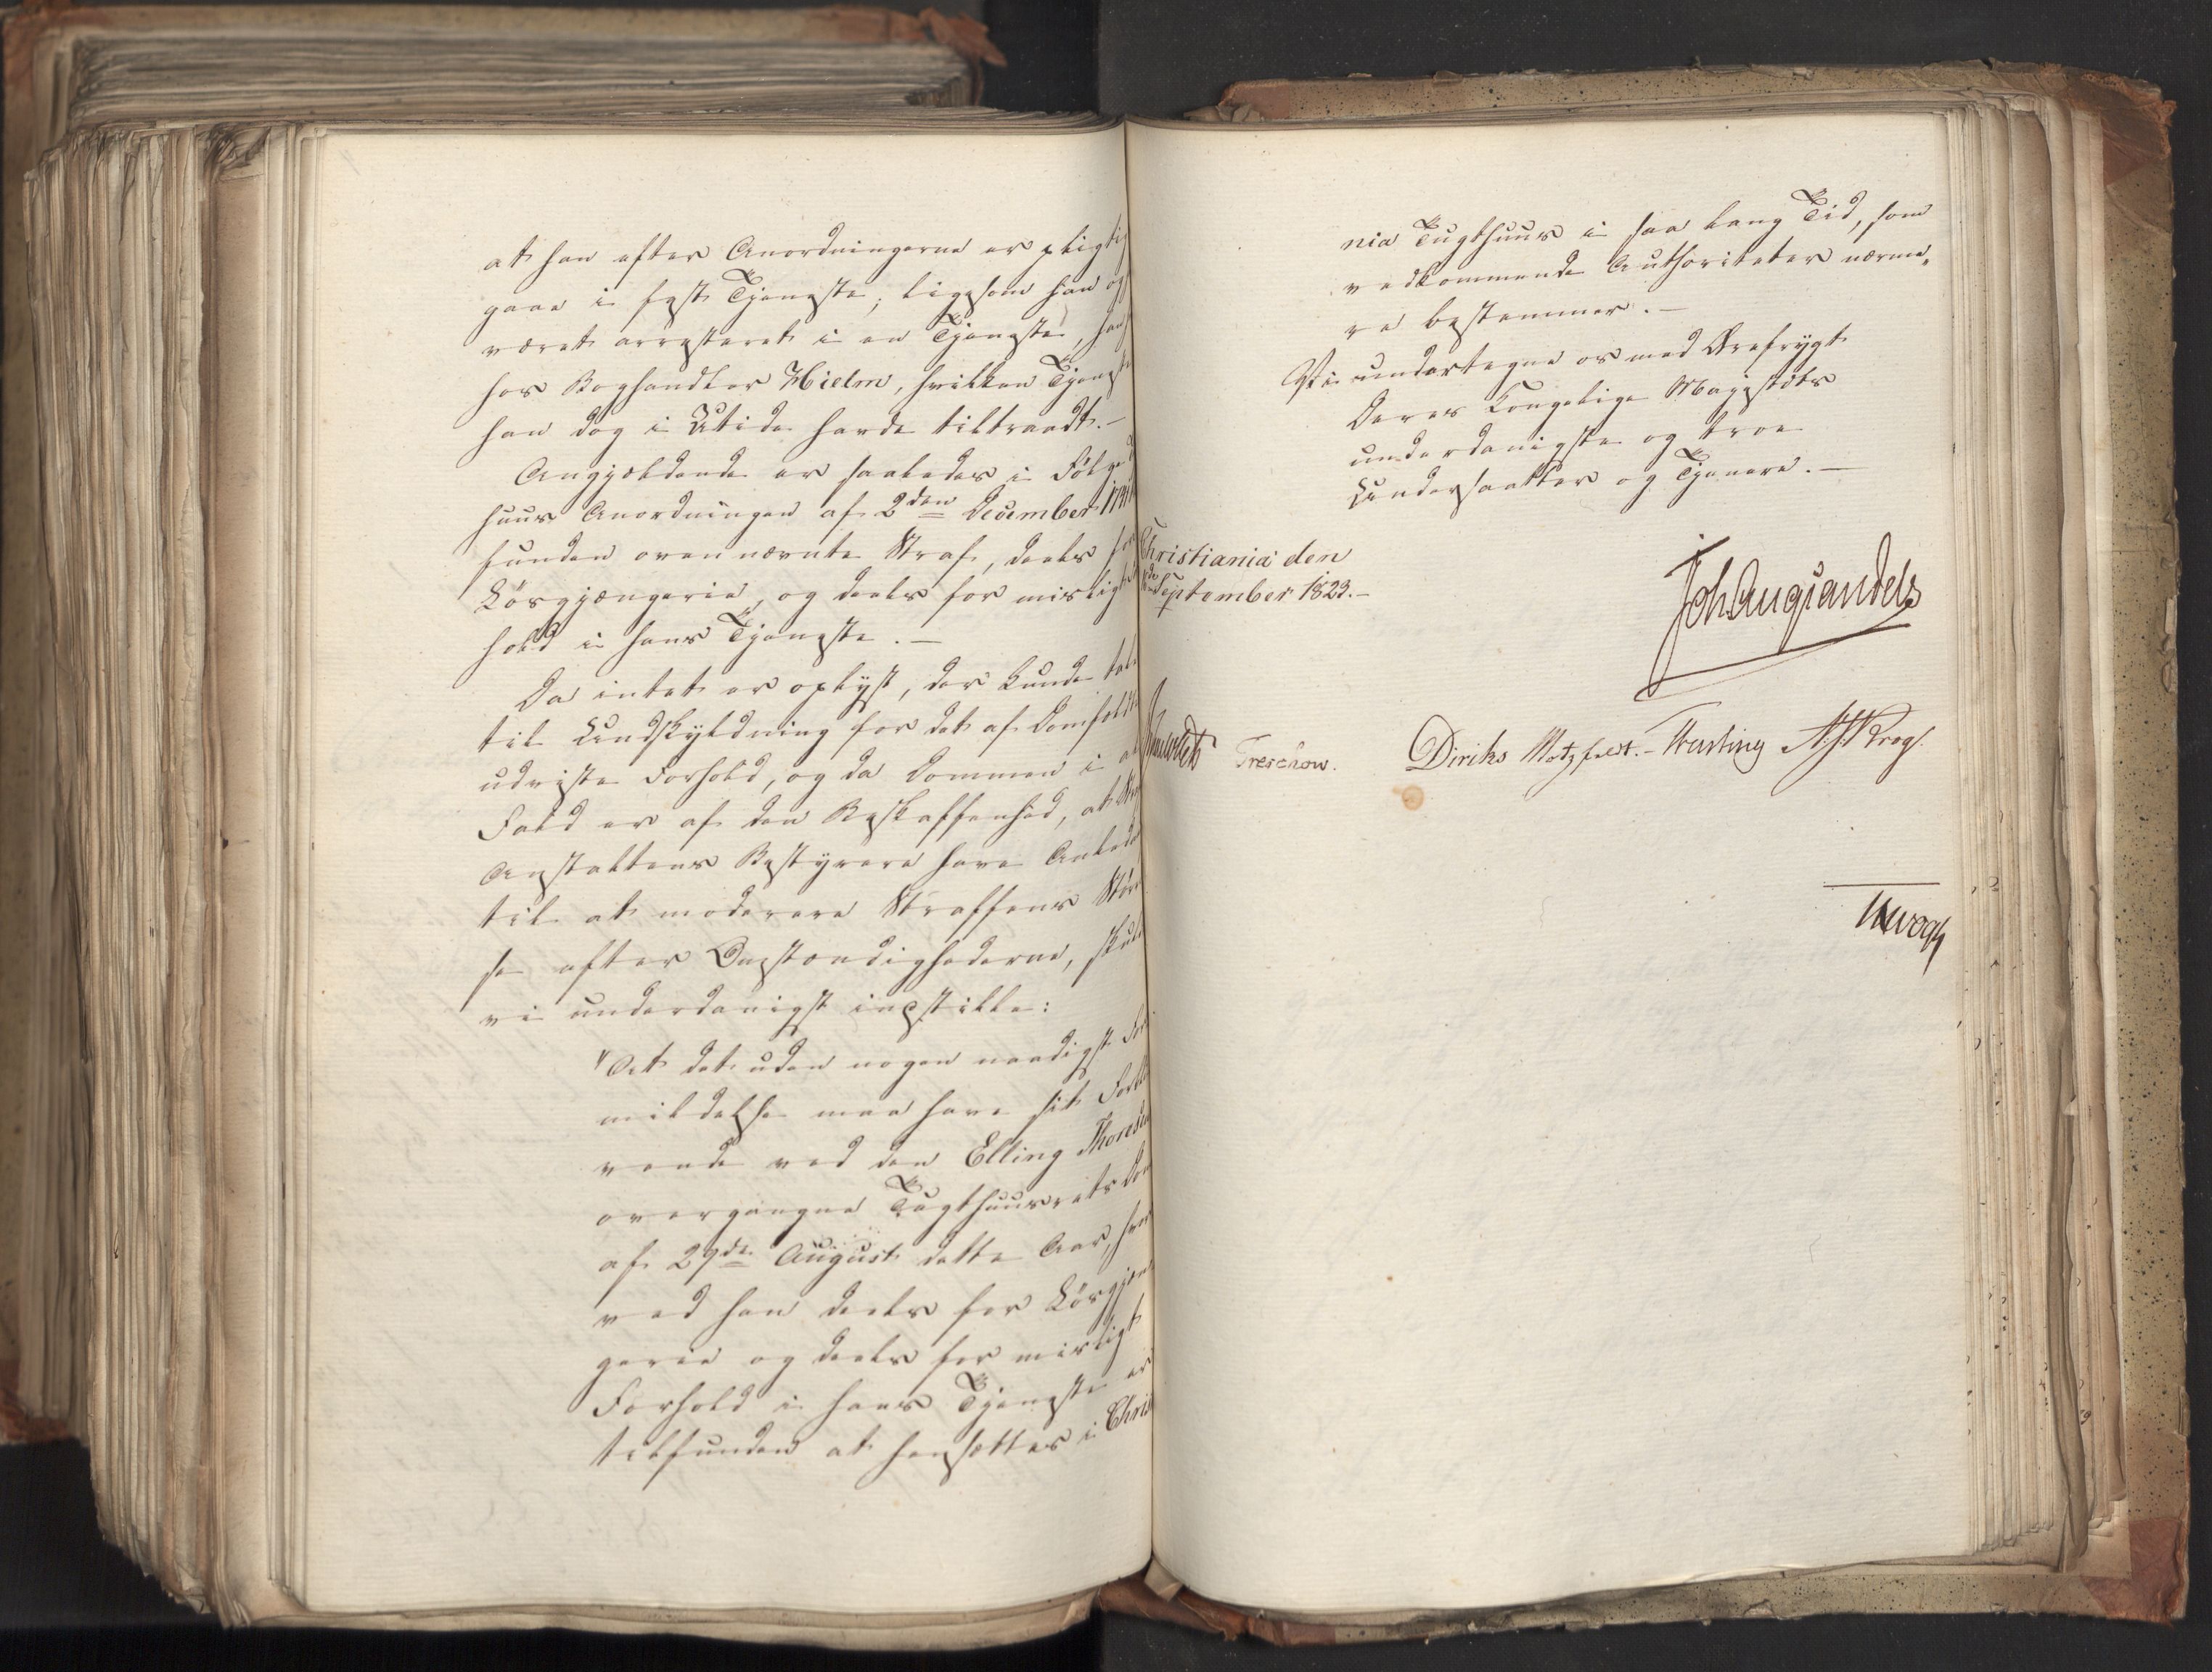 at han efter Anordningerne er pligtig
gaae i fast Tjeneste, ligesom han og
været arresteret i en Tjeneste,
hos Boghandler Hielm, hvilken Tjenest
han dog i Utide havde tiltraadt.-
Angjældende er saaledes i Følge
huus Anordningen af 2den December 1741
funden ovennævnte Straf, deels for
Løsgjængerie, og deels for misligt
hold i hans Tjeneste.-
Da intet er oplyst, der kunde tale
til Undskyldning for det af Domfældte
udviste Forhold, og da Dommen i
Fald er af den Beskaffenhed, at
Anstaltens Bestyrere have Anled
til at moderere Straffens Stør
se efter Omstændighederne, skul
vi underdanigst indstille:
"At det uden nogen naadigst For
mildelse maa have sit Forbli
vende ved den Elling Thoresen
overgangne Tugthuusrets Dom
af 29de August dette Aar, hvor
ved han deels for Løsgjæn
gerie og deels for misligt
Forhold i hans Tjeneste er
tilfunden at hensættes i Chris
nia Tugthuus i saa lang Tid, som
vedkommende Authoriteter nærme„
re bestemmer.-
Vi undertegne os med Ærefrygt
Deres Kongelige Majestæts
underdanigste og troe
Undersaatter og Tjenere.-
Christiania den
September 1823.-
Joh Aug Sandels
Treschow. Diriks Motzfeldt.- Krog.